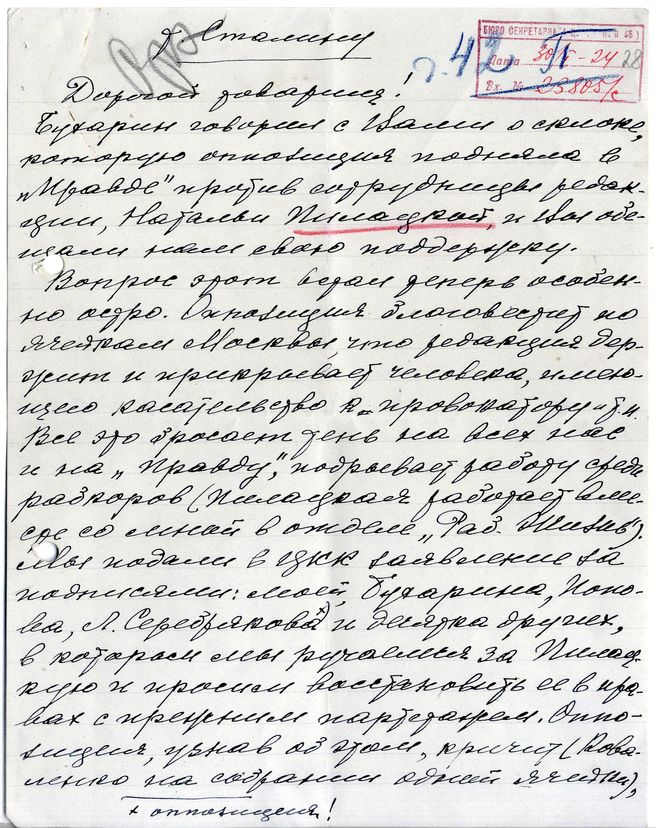 т. Сталину
БЮРО СЕКРЕТАРИАТА
Дата 30/I-24
28
т. 42
Вх. № 23805/с
Дорогой товарищ!
Бухарин говорил с Вами о склоке,
которую оппозиция подняла в
„Правде" против сотрудницы редак-
ции, Натальи Пилацкой, и Вы обе-
щали нам свою поддержку.
Вопрос этот встал теперь особен-
но остро. Оппозиция благовестит по
ячейкам Москвы, что редакция дер-
жит и прикрывает человека, имею-
щего касательство к „провокатору" и т. п.
Все это бросает тень на всех нас
и на „Правду", подрывает работу среди
рабкоров (Пилацкая работает вме-
сте со мной в отделе „Раб. Жизнь").
Мы подали в ЦКК заявление за
подписями: моей, Бухарина, Попо-
ва, Л. Серебрякова+) и десятка других,
в котором мы ручаемся за Пилац-
кую и просим восстановить ее в пра-
вах с прежним партстажем. Оппо-
зиция, узнав об этом, кричит (Кова-
ленко на собрании одной ячейки),
+ оппозиция!